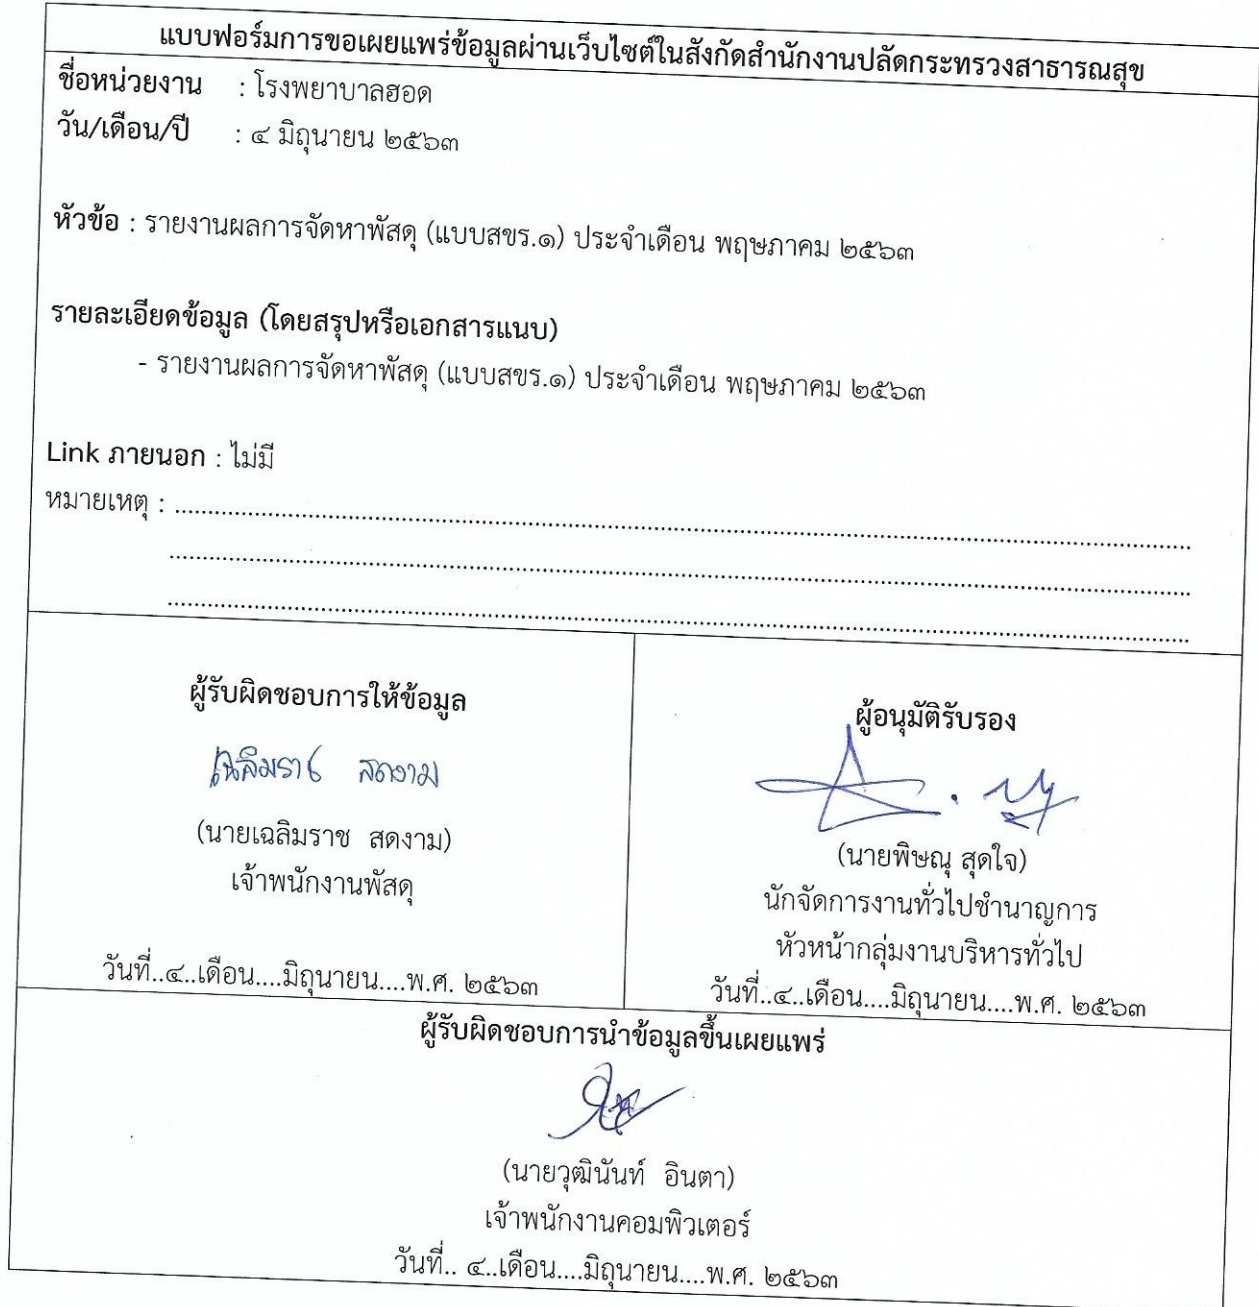 แบบฟอร์มการขอเผยแพร่ข้อมูลผ่านเว็บไซต์ในสังกัดสำนักงานปลัดกระทรวงสาธารณสุข
ชื่อหน่วยงาน : โรงพยาบาลฮอด
วัน/เดือน/ปี : ๔ มิถุนายน ๒๕๖๓
หัวข้อ : รายงานผลการจัดหาพัสดุ (แบบสขร.๑) ประจำเดือน พฤษภาคม ๒๕๖๓
รายละเอียดข้อมูล (โดยสรุปหรือเอกสารแนบ)
- รายงานผลการจัดหาพัสดุ (แบบสขร.๑) ประจำเดือน พฤษภาคม ๒๕๖๓
Link ภายนอก : ไม่มี
หมายเหตุ : ..........
ผู้รับผิดชอบการให้ข้อมูล
เฉลิมราช สดงาม
(นายเฉลิมราช สดงาม)
เจ้าพนักงานพัสดุ
วันที่..๔..เดือน....มิถุนายน....พ.ศ. ๒๕๖๓
ผู้อนุมัติรับรอง
(นายพิษณุ สุดใจ)
นักจัดการงานทั่วไปชำนาญการ
หัวหน้ากลุ่มงานบริหารทั่วไป
วันที่..๔..เดือน....มิถุนายน....พ.ศ. ๒๕๖๓
ผู้รับผิดชอบการนำข้อมูลขึ้นเผยแพร่
(นายวุฒินันท์ อินตา)
เจ้าพนักงานคอมพิวเตอร์
วันที่.. ๔..เดือน....มิถุนายน....พ.ศ. ๒๕๖๓